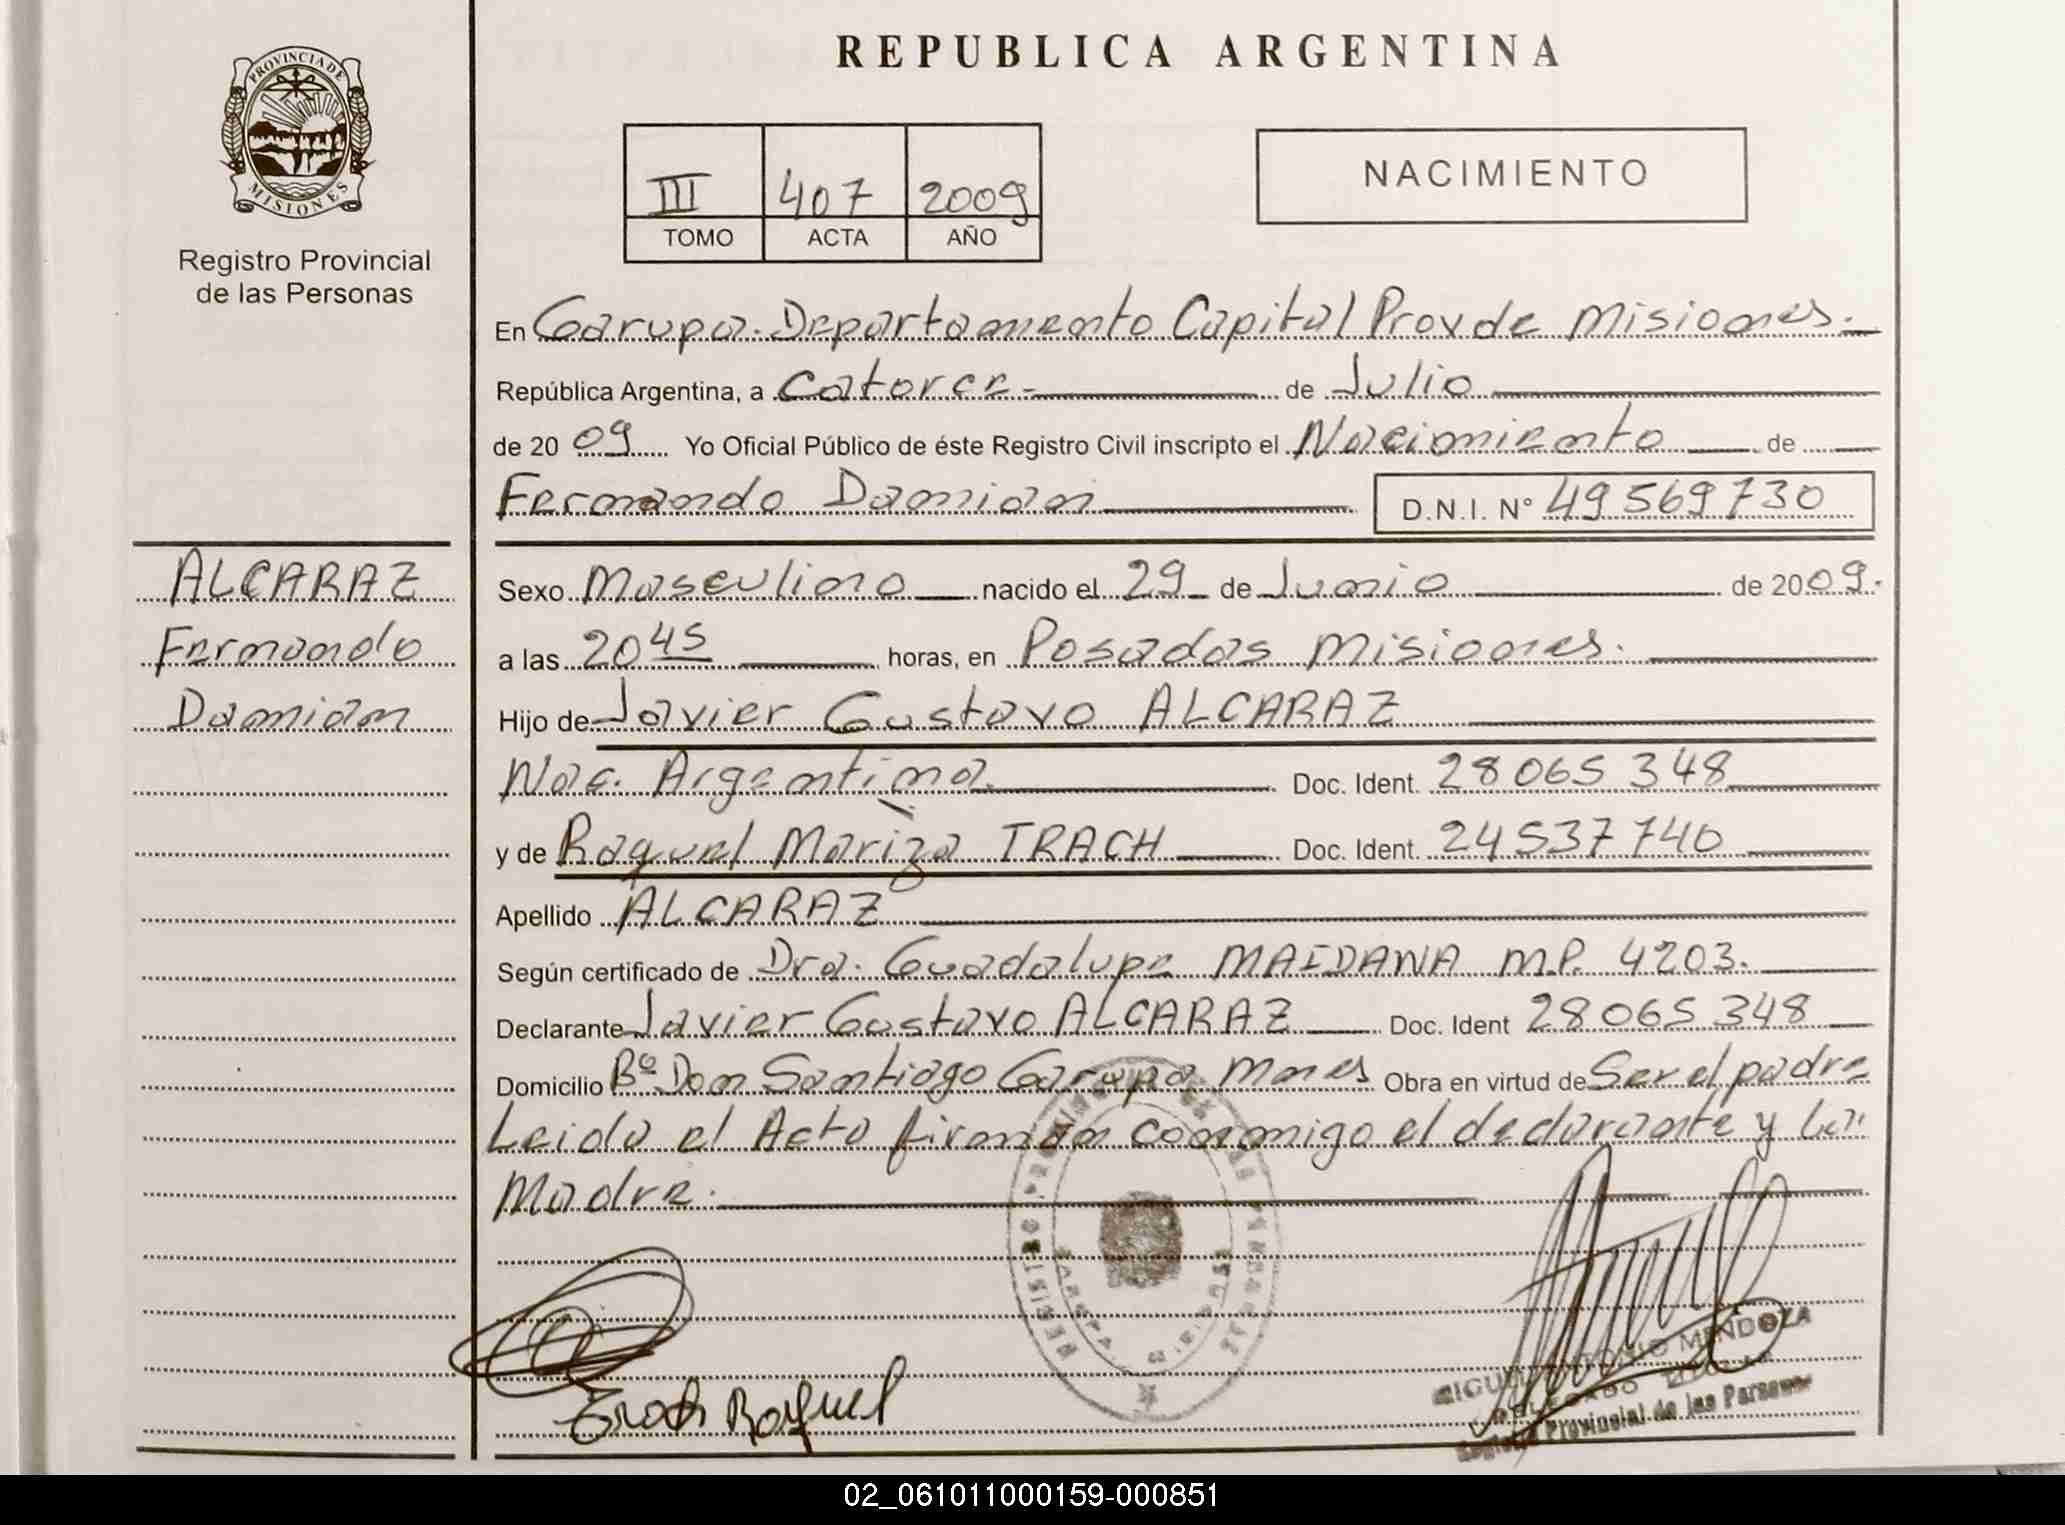 REPUBLICA ARGENTINA
PROVINCIA DE
MISIONES
Registro Provincial
de las Personas
III 407 2009
TOMO ACTA AÑO
NACIMIENTO
En Garupa. Departamento Capital Prov de Misiones.
República Argentina, a Catorce de Julio
de 2009 Yo Oficial Público de éste Registro Civil inscripto el Nacimiento de
Fernando Damian D.N.I. N° 49569730
ALCARAZ
Fernando
Damian
Sexo Masculino nacido el 29 de Junio de 2009.
a las 20 45 horas, en Posadas Misiones.
Hijo de Javier Gustavo ALCARAZ
Nac. Argentina. Doc. Ident. 28065348
y de Raquel Mariza TRACH Doc. Ident. 24537740
Apellido ALCARAZ
Según certificado de Dra. Guadalupe MAIDANA M.P. 4203.
Declarante Javier Gustavo ALCARAZ Doc. Ident 28065348
Domicilio Bº Don Santiago Garupa Mnes Obra en virtud de Ser el padre
Leido el Acta firman conmigo el declarante y la
Madre.
Trach Raquel
MENDOZA
Provincial de las Personas
02_061011000159-000851